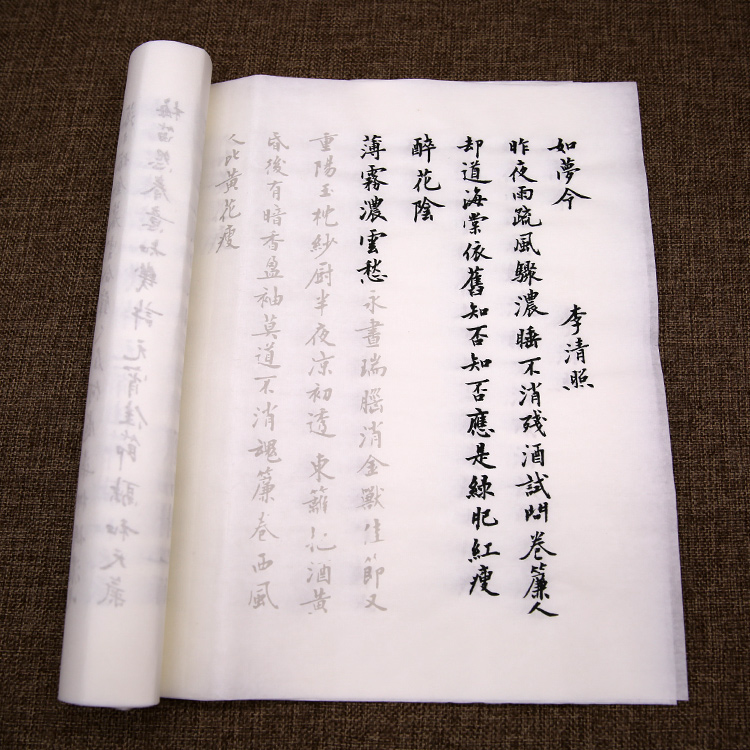 如夢令
李清照
昨夜雨疏風驟濃睡不消殘酒試問卷簾人
却道海棠依舊知否知否應是綠肥紅瘦
醉花陰
薄霧濃雲愁永晝瑞腦消金獸佳節又
重陽玉枕紗厨半夜凉初透東籬把酒黃
昏後有暗香盈袖莫道不消魂簾卷西風
人比黃花瘦